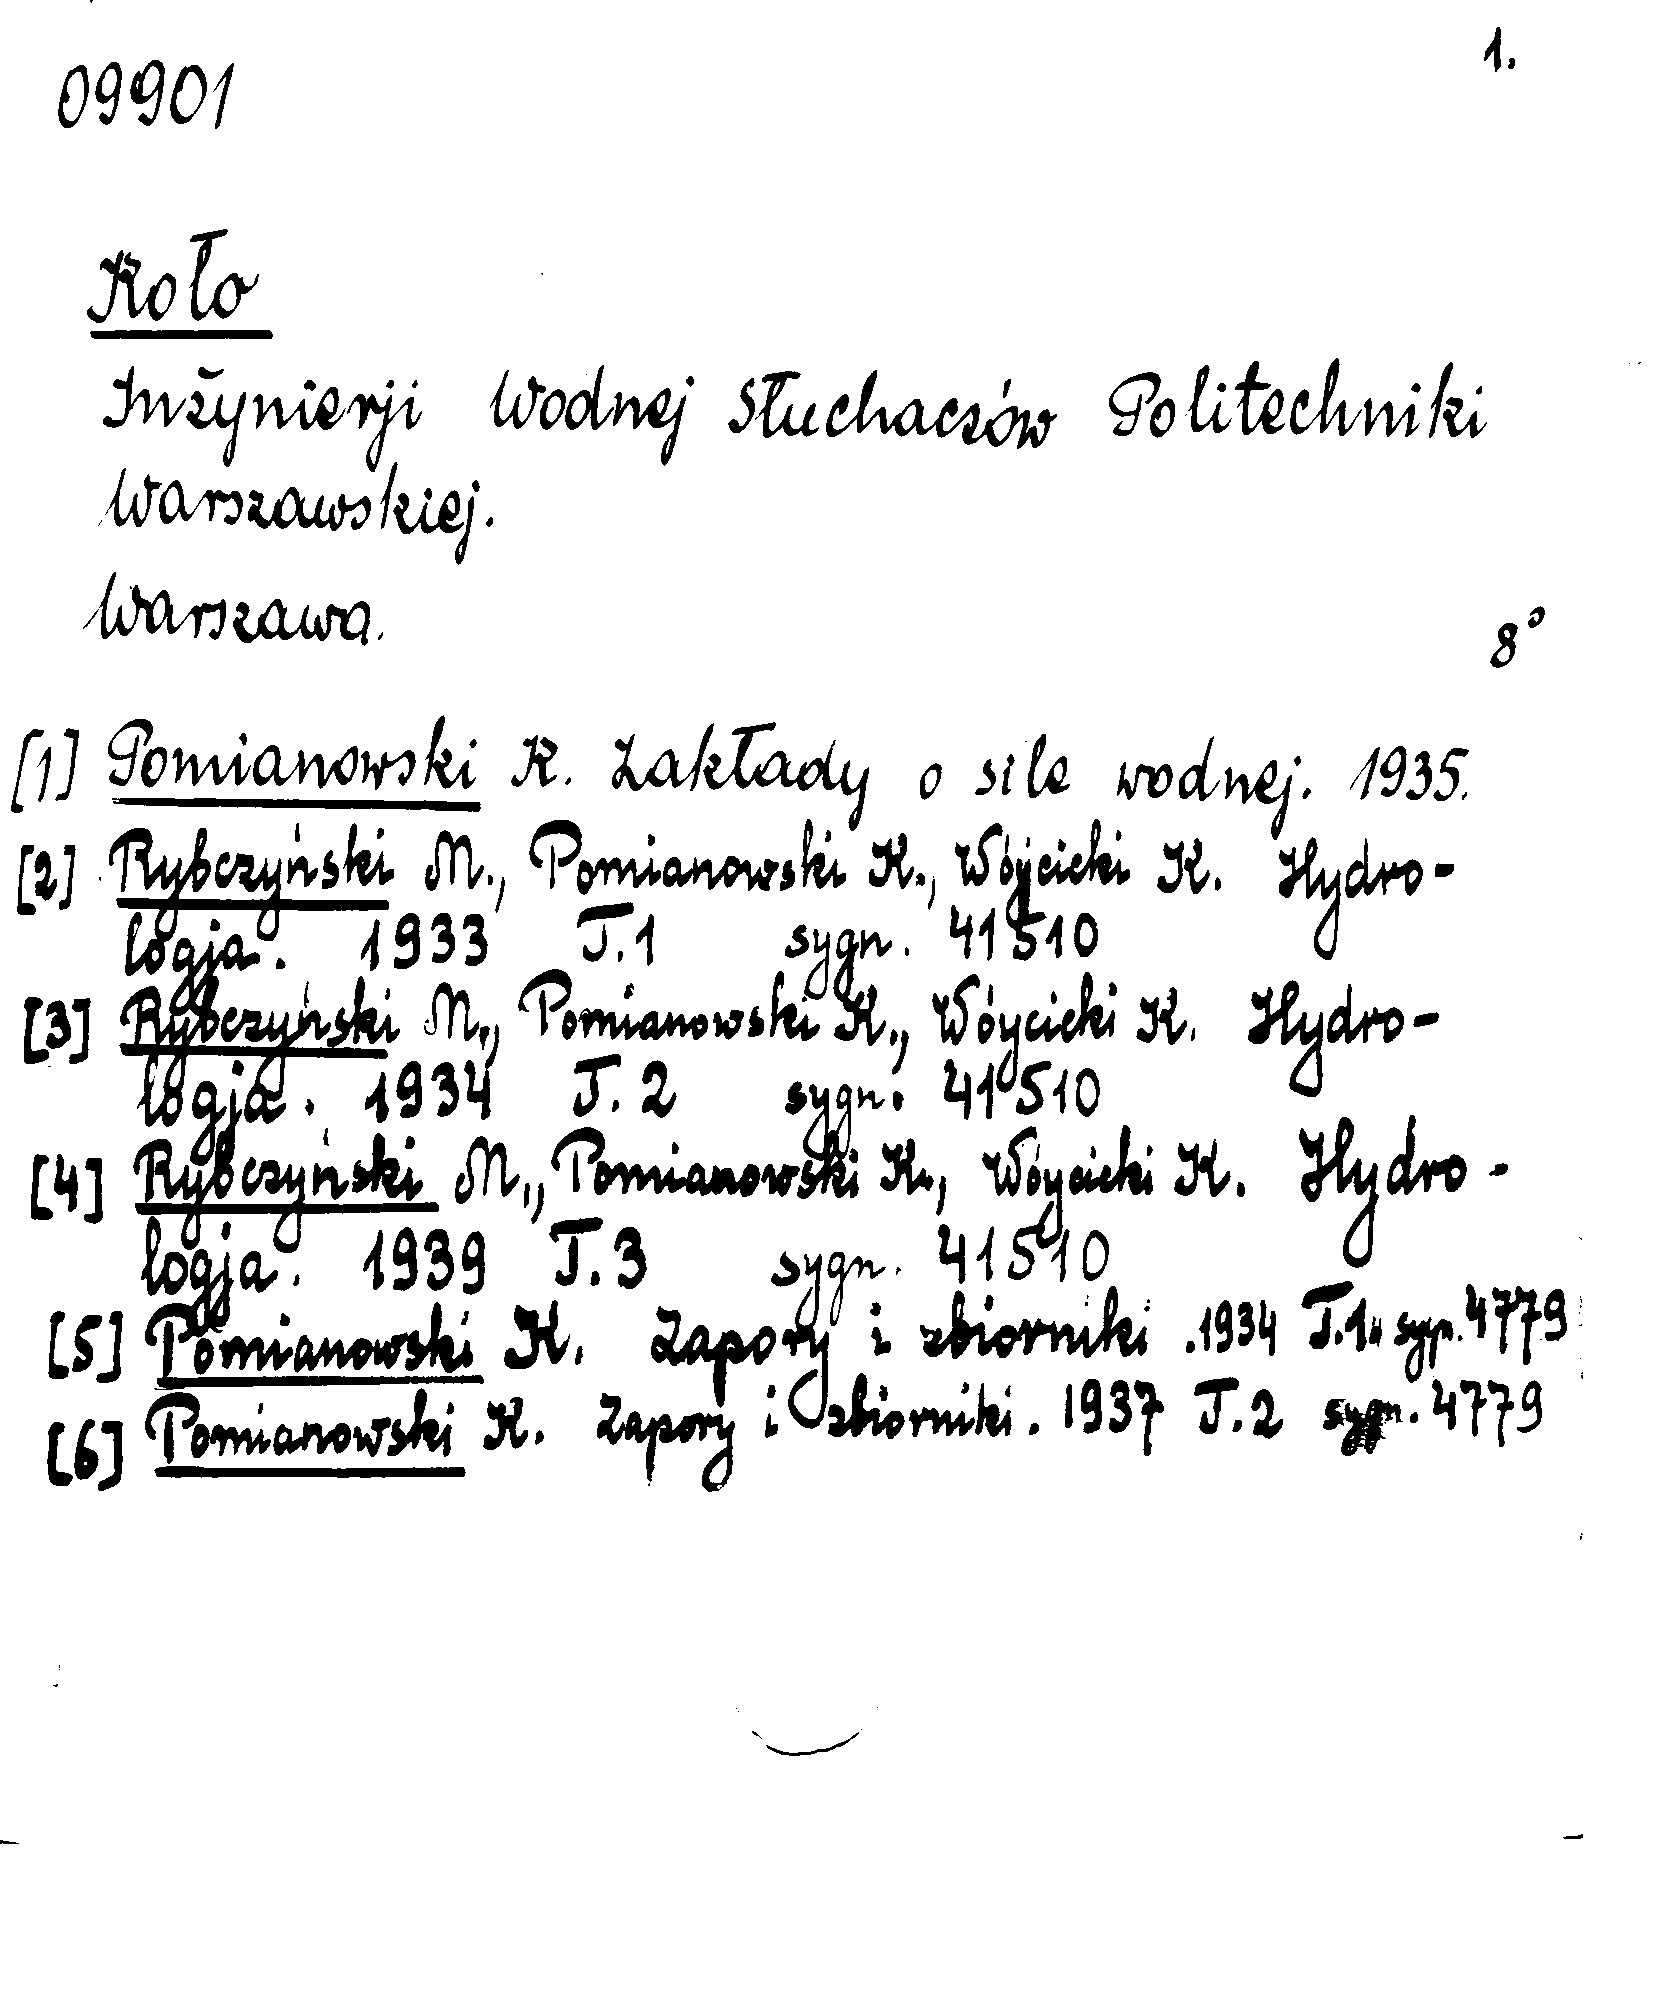 1.
09901
Koło
Inżynierji Wodnej Słuchaczów Politechniki
Warszawskiej.
Warszawa.
8°
[1] Pomianowski K. Zakłady o sile wodnej. 1935.
[2] Rybczyński M., Pomianowski K., Wóycicki K. Hydro-
logja. 1933 T.1 sygn. 41510
[3] Rybczyński M., Pomianowski K., Wóycicki K. Hydro-
logja. 1934 T.2 sygn. 41510
[4] Rybczyński M., Pomianowski K., Wóycicki K. Hydro-
logja. 1939 T.3 sygn. 41510
[5] Pomianowski K. Zapory i zbiorniki .1934 T.1. sygn. 4779
[6] Pomianowski K. Zapory i zbiorniki. 1937 T.2 sygn. 4779